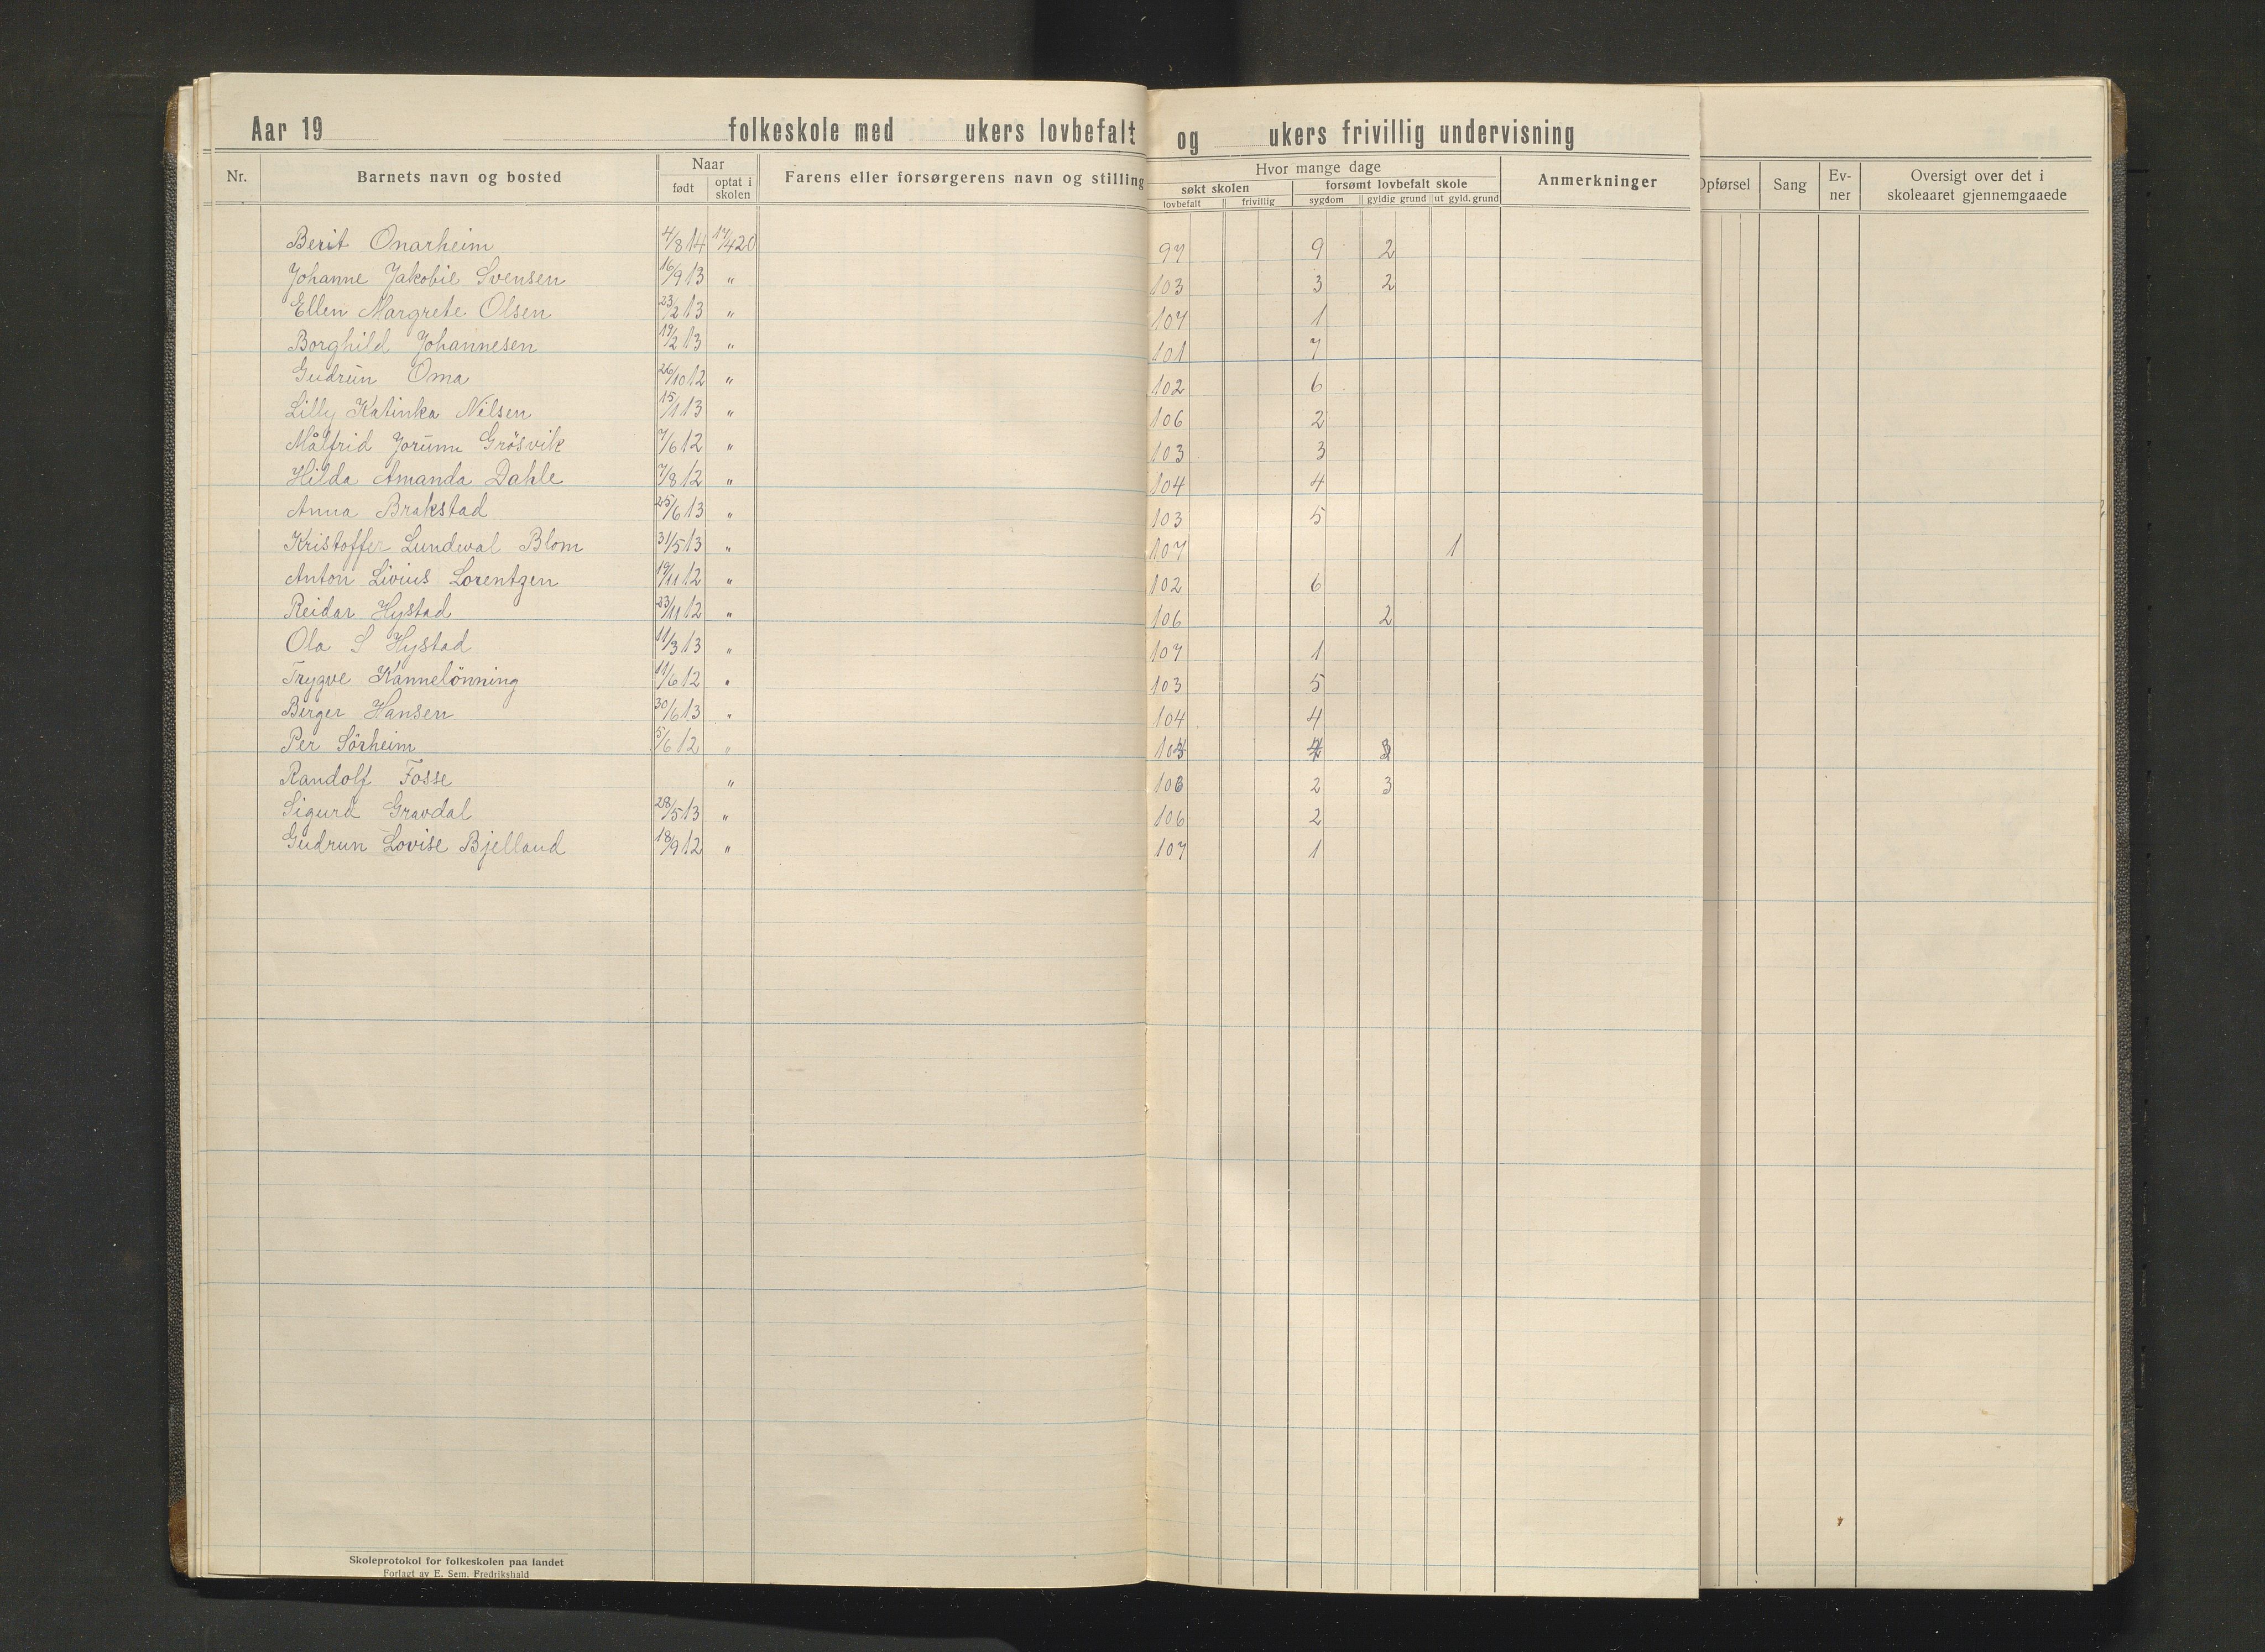 Aar 19 folkeskole med ukers lovbefalt og ukers frivillig undervisning
Nr. Barnets navn og bosted Naar født optat i skolen Farens eller forsørgerens navn og stilling Hvor mange dage søkt skolen lovbefalt frivillig forsømt lovbefalt skole sygdom gyldig grund ut gyld. grund Anmerkninger Opførsel Sang Ev-ner Oversigt over det i skoleaaret gjennemgaaede
Berit Onarheim 4/8 14 17/4 20 97 9 2
Johanne Jakobie Svensen 16/9 13 " 103 3 2
Ellen Margrete Olsen 23/2 13 " 107 1
Borghild Johannesen 19/2 13 " 101 7
Gudrun Oma 26/10 12 " 102 6
Lilly Katinka Nilsen 15/1 13 " 106 2
Målfrid Jorunn Grösvik 7/6 12 " 103 3
Hilda Amanda Dahle 7/8 12 " 104 4
Anna Brakstad 25/6 13 " 103 5
Kristoffer Lundeval Blom 31/5 13 " 107 1
Anton Livius Lorentzen 19/11 12 " 102 6
Reidar Hystad 23/11 12 " 106 2
Ola S Hystad 11/3 13 " 107 1
Trygve Kannelönning 11/6 12 " 103 5
Berger Hansen 30/6 13 " 104 4
Per Sörheim 5/6 12 "
Randolf Fosse " 2 3
Sigurd Gravdal 28/5 13 " 106 2
Gudrun Lovise Bjelland 18/9 12 " 107 1
Skoleprotokol for folkeskolen paa landet
Forlagt av E. Sem. Fredrikshald